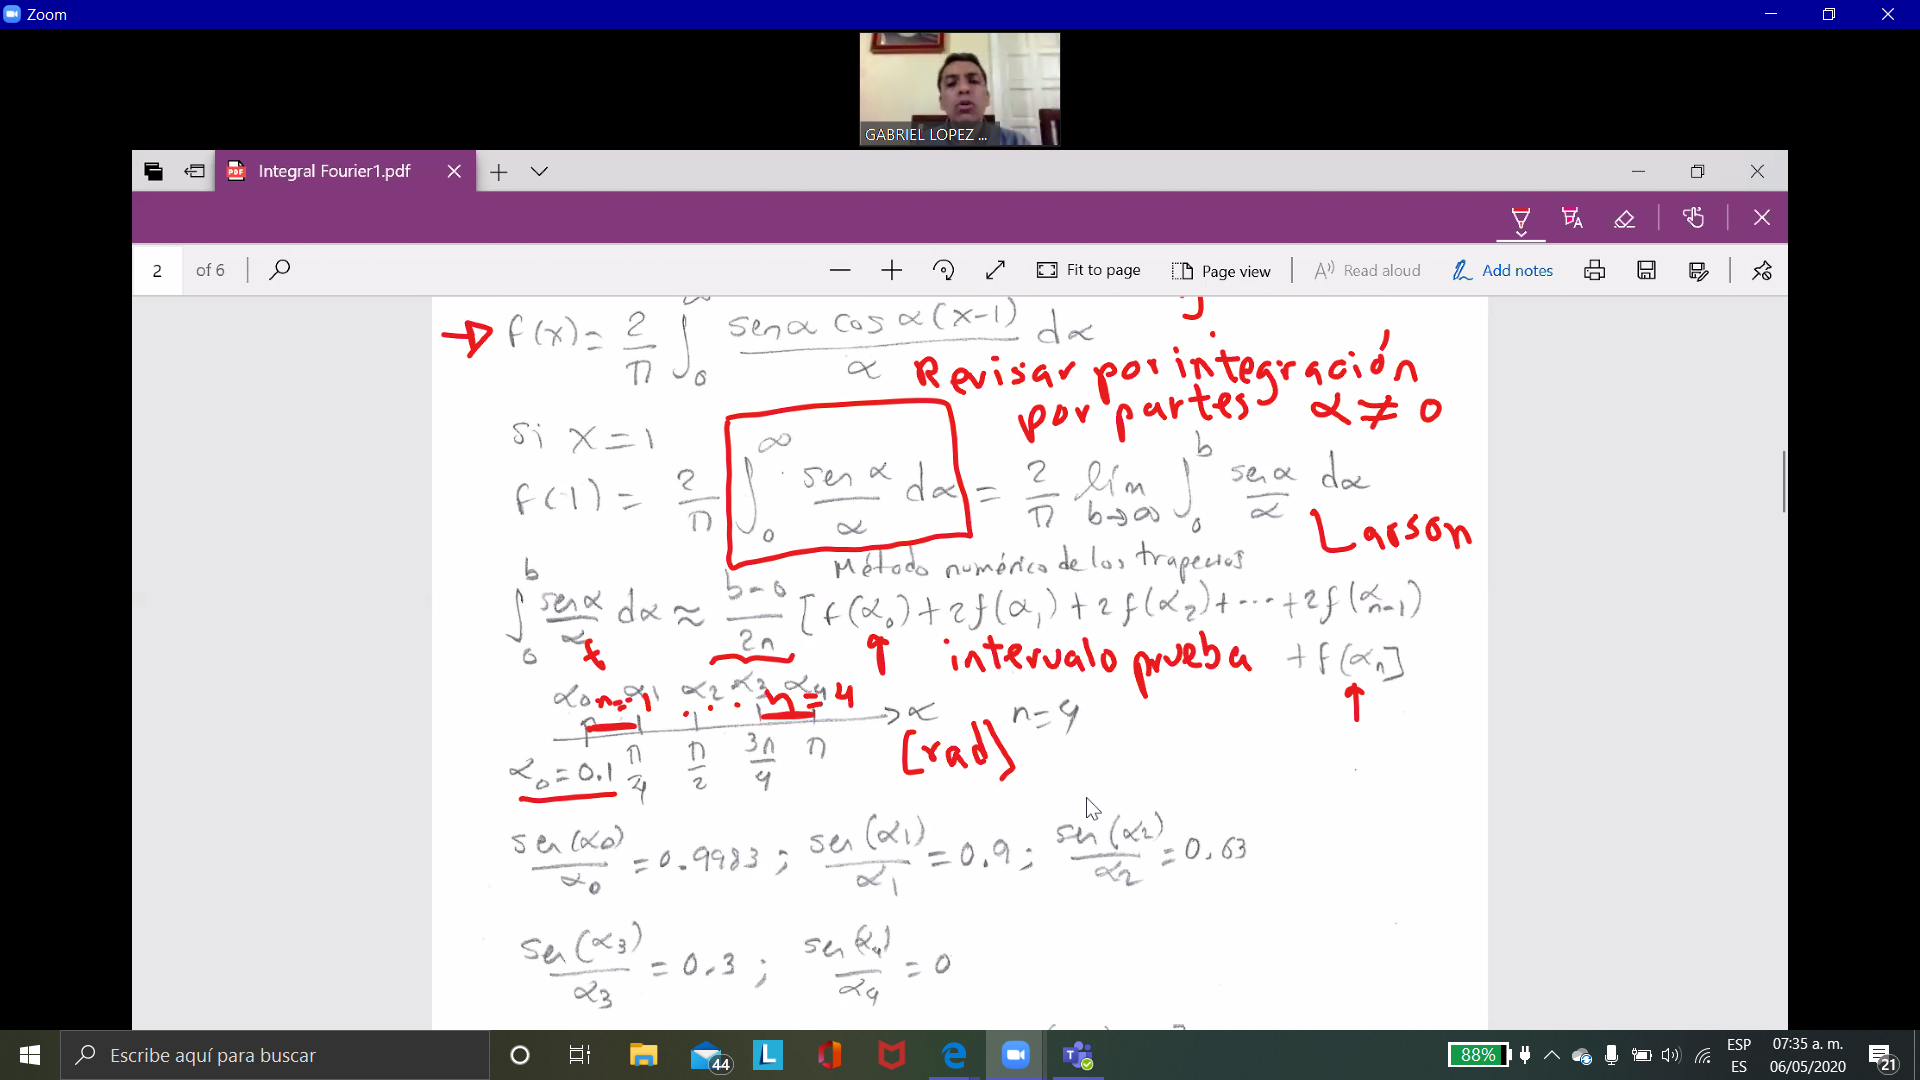 Zoom
GABRIEL LOPEZ ...
Integral Fourier1.pdf
2 of 6
Fit to page
Page view
Read aloud
Add notes
f(x) = 2/π ∫₀^∞ sen α cos α(x-1)/α dα
Revisar por integración
por partes α ≠ 0
si x = 1
f(1) = 2/π ∫₀^∞ sen α/α dα = 2/π lím b→∞ ∫₀^b sen α/α dα
Larson
Método numérico de los trapecios
∫₀^b sen α/α dα ≈ b-0/2n [f(α₀) + 2f(α₁) + 2f(α₂) + ... + 2f(αn-1)
+ f(αn]
intervalo prueba
α₀ α₁ α₂ α₃ α₄
n=1 ... n=4
α n=4
[rad]
α₀ = 0.1 π/4 π/2 3π/4 π
sen(α₀)/α₀ = 0.9983 ; sen(α₁)/α₁ = 0.9 ; sen(α₂)/α₂ = 0.63
sen(α₃)/α₃ = 0.3 ; sen(α₄)/α₄ = 0
Escribe aquí para buscar
44
88%
ESP
ES
07:35 a. m.
06/05/2020
21